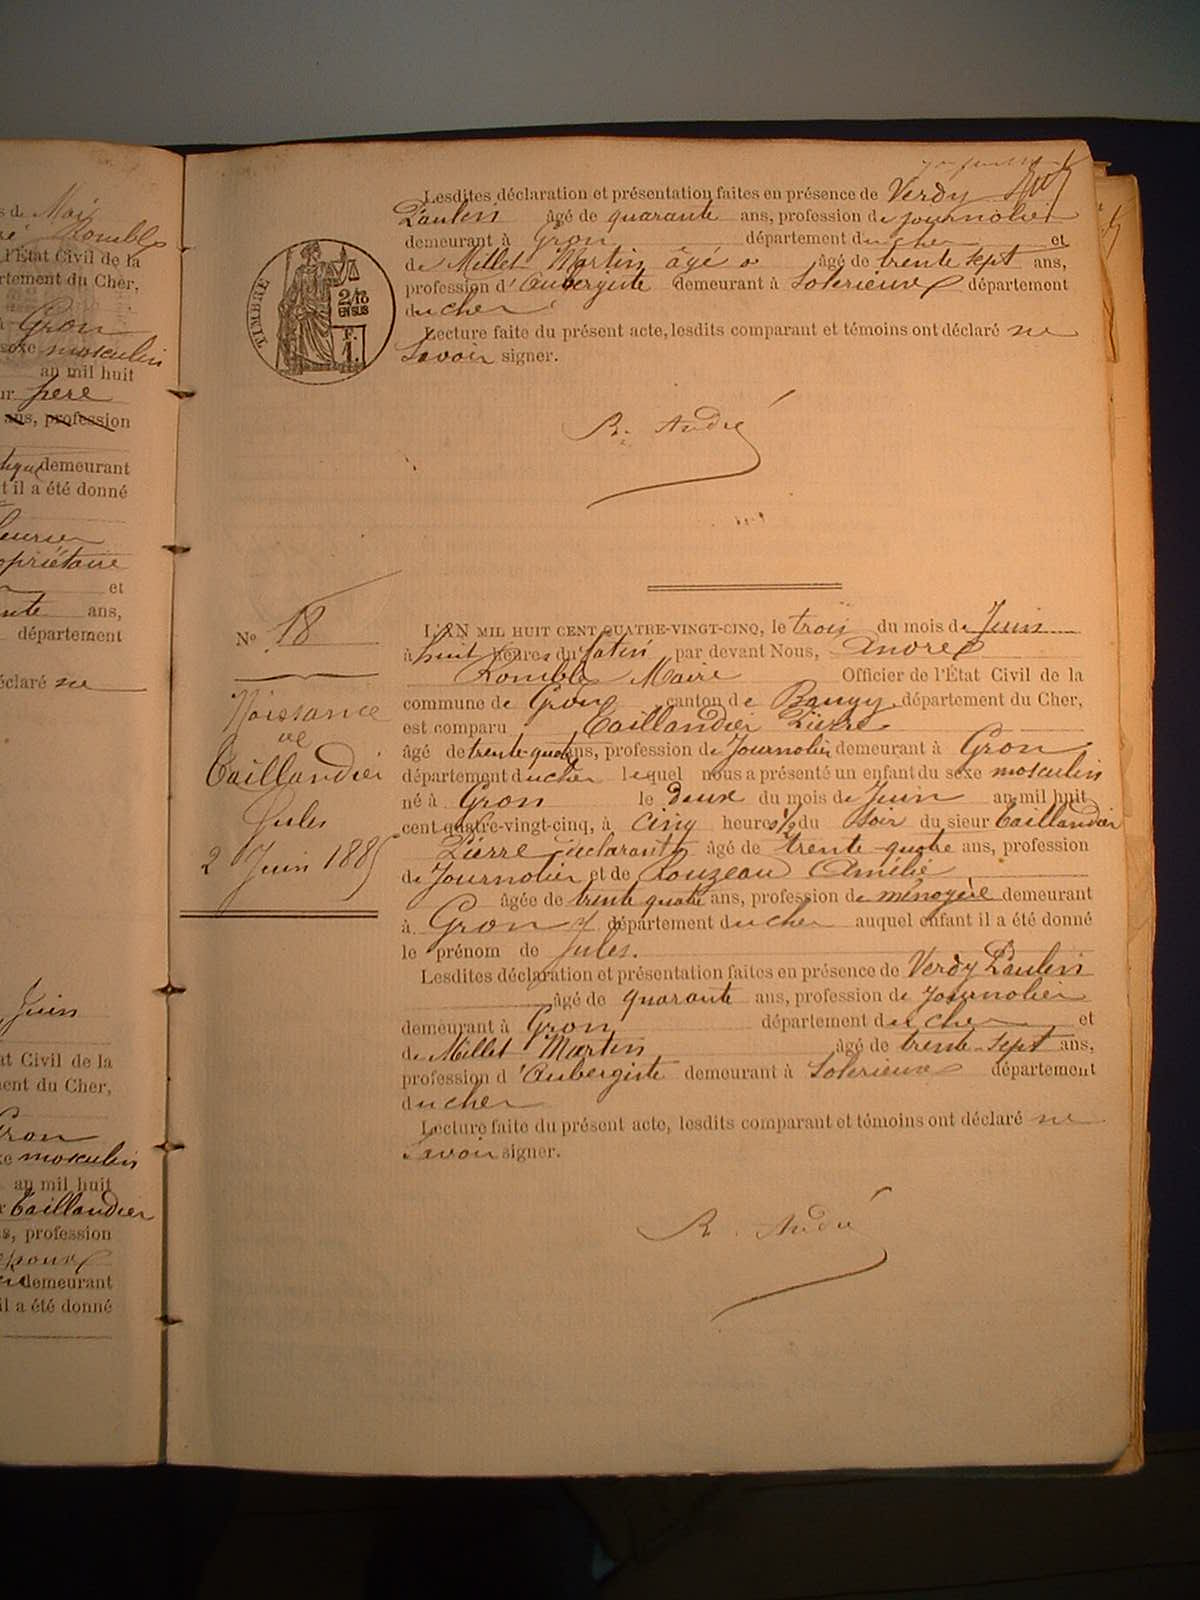 s de Mai
Romble
l'État Civil de la
rtement du Cher,
Gron
sexe masculin
an mil huit
ur père
ans, profession
demeurant
t il a été donné
opriétaire
et
ente ans,
département
éclaré ne
Juin
at Civil de la
ment du Cher,
Gron
xe masculin
an mil huit
r Taillandier
s, profession
demeurant
il a été donné
Lesdites déclaration et présentation faites en présence de Verdy
Paulin âgé de quarante ans, profession de journalier
demeurant à Gron département du cher et
de Millet Martin âgé de trente sept ans,
profession d'Aubergiste demeurant à Solérieux département
du cher
Lecture faite du présent acte, lesdits comparant et témoins ont déclaré ne
Savoir signer.
TIMBRE
2/10
EN SUS
F.
1.
R. André
No 18
Naissance
de
Taillandier
Jules
2 Juin 1885
L'AN MIL HUIT CENT QUATRE-VINGT-CINQ, le trois du mois de Juin
à huit heures du Matin par devant Nous, André
Romble Maire Officier de l'État Civil de la
commune de Gron canton de Baugy, département du Cher,
est comparu Taillandier Pierre
âgé de trente-quatre ans, profession de Journalier demeurant à Gron
département du cher lequel nous a présenté un enfant du sexe masculin
né à Gron le deux du mois de Juin an mil huit
cent quatre-vingt-cinq, à cinq heures 1/2 du soir du sieur Taillandier
Pierre déclarant âgé de trente-quatre ans, profession
de Journalier et de Louzeau Amélie
âgée de trente quatre ans, profession de ménagère demeurant
à Gron département du cher auquel enfant il a été donné
le prénom de Jules.
Lesdites déclaration et présentation faites en présence de Verdy Paulin
âgé de quarante ans, profession de Journalier
demeurant à Gron département du cher et
de Millet Martin âgé de trente-sept ans,
profession d'Aubergiste demeurant à Solérieux département
du cher
Lecture faite du présent acte, lesdits comparant et témoins ont déclaré ne
Savoir signer.
R. André